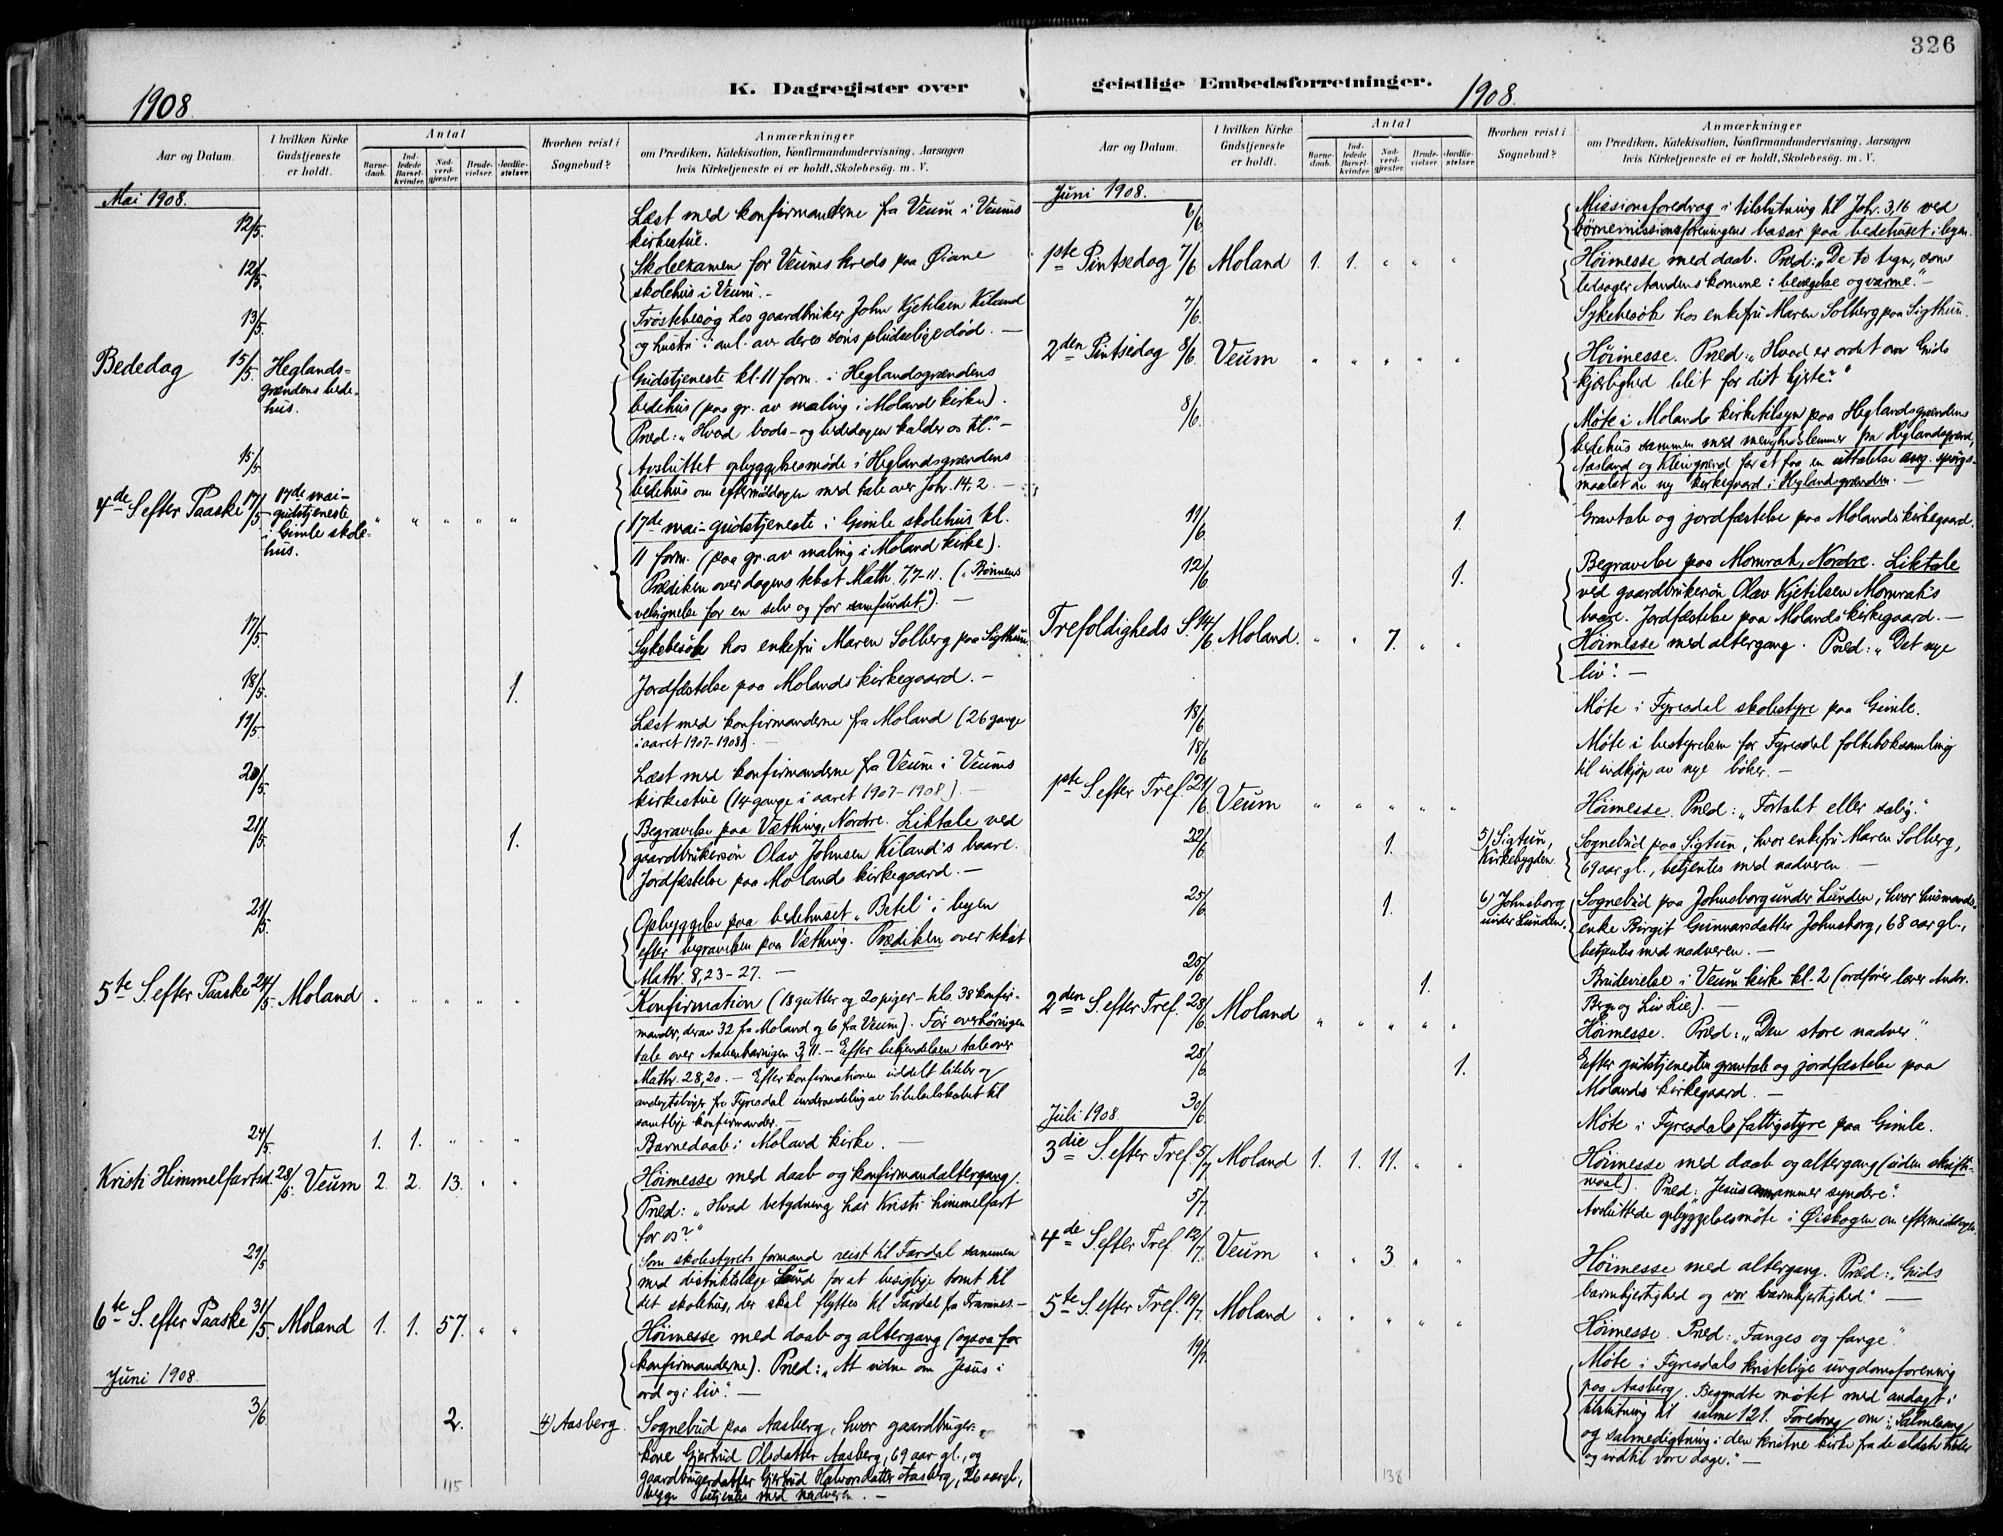 326
K. Dagregister over
geistlige Embedsforretninger.
1908
1908.
Aar og Datum.
I hvilken Kirke
Gudstjeneste
er holdt.
Antal
Barne-
daab.
Ind-
ledede
Barsel-
kvinder.
Nad-
verd-
gjæster.
Brude-
vielser.
Jordfæ-
stelser.
Hvorhen reist i
Sognebud?
Anmærkninger
om Prædiken, Katekisation, Konfirmandundervisning, Aarsagen
hvis Kirketjeneste ei er holdt, Skolebesøg. m. V.
Mai 1908.
12/5. Læst med konfirmanderne fra Veum i Veums
kirkestue.
12/5. Skoleexamen for Veums kreds paa Øiane
skolehus i Veum. –
13/5. Trøstebesøg hos gaardbruker John Kjetilsen Kiland
og hustru i anl. av deres søns pludselige død. –
Bededag 15/5. Heglands-
grændens bede-
hus.
Gudstjeneste kl. 11 form. i Heglandsgrændens
bedehus (paa gr. av maling i Molands kirke).
Præd: „Hvad bods- og bededagen kalder os til." –
15/5. Avsluttet opbyggelsesmøde i Heglandsgrændens
bedehus om eftermiddagen med tale over Joh. 14,2. –
4de S. efter Paaske 17/5 17de mai-
gudstjeneste
i Gimle skole-
hus. " " " " "
17de mai-gudstjeneste i Gimle skolehus kl.
11 form. (paa gr. av maling i Moland kirke).
Prædiken over dagens tekst Math. 7,7-11. („Bønnens
velsignelse for en selv og for samfundet"). –
17/5. Sykebesøk hos enkefru Maren Solberg paa Sigthun.
18/5. 1. Jordfæstelse paa Molands kirkegaard. –
19/5. Læst med konfirmanderne fra Moland (26 gange
i aaret 1907-1908). –
20/5. Læst med konfirmanderne fra Veum i Veums
kirkestue (14 gange i aaret 1907-1908). –
21/5. 1. Begravelse paa Væthing, Nordre. Liktale ved
gaardbrukersøn Olav Johnsen Kiland's baare.
Jordfæstelse paa Molands kirkegaard. –
21/5. Opbyggelse paa bedehuset „Betel" i byen
efter begravelsen paa Væthing. Prædiken over tekst
Math. 8,23-27. –
5te S. efter Paaske 24/5 Moland " " " " "
Konfirmation (18 gutter og 20 piger – tils. 38 konfir-
mander, derav 32 fra Moland og 6 fra Veum). Før overhøringen
tale over Aabenbaringen 3,11. – Efter bekjendelsen tale over
Math. 28,20. – Efter konfirmationen uddelt bibler og
andagtsbøger fra Fyresdal underavdeling av bibelselskabet til
samtlige konfirmander. –
24/5. 1. 1. " " " Barnedaab i Moland kirke. –
Kristi Himmelfartsd. 28/5. Veum 2. 2. 13. " "
Høimesse med daab og konfirmandaltergang.
Præd: „Hvad betydning har Kristi himmelfart
for os?"
29/5. Som skolestyrets formand reist til Fardal sammen
med distriktslæge Lund for at besigtige tomt til
det skolehus, der skal flyttes til Fardal fra Framnes. –
6te S. efter Paaske 31/5 Moland 1. 1. 57. " "
Høimesse med daab og altergang (ogsaa for
konfirmanderne). Præd: „At vidne om Jesus i
ord og i liv". –
Juni 1908.
3/6 2. 4) Aasberg.
Sognebud paa Aasberg, hvor gaardbruger-
kone Gjertrud Olsdatter Aasberg, 69 aar gl., og
gaardbrugerdatter Gjertrud Halvorsdatter Aasberg, 26 aar gl.,
begge betjentes med nadveren. –
115
Aar og Datum.
I hvilken Kirke
Gudstjeneste
er holdt.
Antal
Barne-
daab.
Ind-
ledede
Barsel-
kvinder.
Nad-
verd-
gjæster.
Brude-
vielser.
Jordfæ-
stelser.
Hvorhen reist i
Sognebud?
Anmærkninger
om Prædiken, Katekisation, Konfirmandundervisning, Aarsagen
hvis Kirketjeneste ei er holdt, Skolebesøg. m. V.
Juni 1908.
6/6. Missionsforedrag i tilslutning til Joh. 3,16 ved
børnemissionsforeningens basar paa bedehuset i byen.
1ste Pintsedag 7/6 Moland 1. 1. " " "
Høimesse med daab. Præd: „De to tegn, som
ledsager Aandens komme: bevægelse og varme." –
7/6. Sykebesøk hos enkefru Maren Solberg paa Sigthun.
2den Pintsedag 8/6. Veum " " " " "
Høimesse. Præd: „Hvad er ordet om Guds
kjærlighed blit for dit hjerte?"
8/6. Møte i Molands kirketilsyn paa Heglandsgrændens
bedehus sammen med menighedslemmer fra Heglandsgrænd,
Aasland og Kleivgrænd for at faa en uttalelse ang. spørgs-
maalet om ny kirkegaard i Heglandsgrænden. –
11/6 1. Gravtale og jordfæstelse paa Molands kirkegaard.
12/6 1. Begravelse paa Momrak, Nordre. Liktale
ved gaardbrukersøn Olav Kjetilsen Momrak's
baare. Jordfæstelse paa Molands kirkegaard. –
Trefoldigheds S. 14/6 Moland. " " 7. " "
Høimesse med altergang. Præd: „Det nye
liv". –
18/6 Møte i Fyresdal skolestyre paa Gimle.
18/6 Møte i bestyrelsen for Fyresdal folkeboksamling
til indkjøp av nye bøker. –
1ste S. efter Tref. 21/6. Veum " " " " "
Høimesse. Præd: „Fortabt eller salig."
22/6. 1. 5) Sigtun,
Kirkebygden.
Sognebud paa Sigtun, hvor enkefru Maren Solberg,
69 aar gl., betjentes med nadveren. –
25/6. 1. 6) Johnsborg
under Lunden.
Sognebud paa Johnsborg under Lunden, hvor husmands-
enke Birgit Gunnarsdatter Johnsborg, 68 aar gl.,
betjentes med nadveren. –
25/6. 1. Brudevielse i Veum kirke kl. 2 (ordfører lærer Andr.
Berge og Liv Lie). –
2den S. efter Tref. 28/6. Moland " " " " "
Høimesse. Præd: „Den store nadver".
28/6. 1. Efter gudstjenesten gravtale og jordfæstelse paa
Molands kirkegaard. –
30/6 Møte i Fyresdals fattigstyre paa Gimle.
Juli 1908
3die S. efter Tref. 5/7 Moland 1. 1. 11. " "
Høimesse med daab og altergang (uden skrifte-
maal). Præd: „Jesus annammer syndere".
5/7. Avsluttede opbyggelsesmøte i Øiskogen om eftermiddagen.
4de S. efter Tref. 12/7. Veum " " 3 " "
Høimesse med altergang. Præd: „Guds
barmhjertighed og vor barmhjertighed." –
5te S. efter Tref. 19/7. Moland " " " " "
Høimesse. Præd: „Fanges og fange".
19/7. Møte i Fyresdals kristelige ungdomsforening
paa Aasberg. Begyndte møtet med andagt i
tilslutning til salme 121. Foredrag om: „Salmesang
og salmedigtning i den kristne kirke fra de ældste tider
og indtil vore dage." –
138